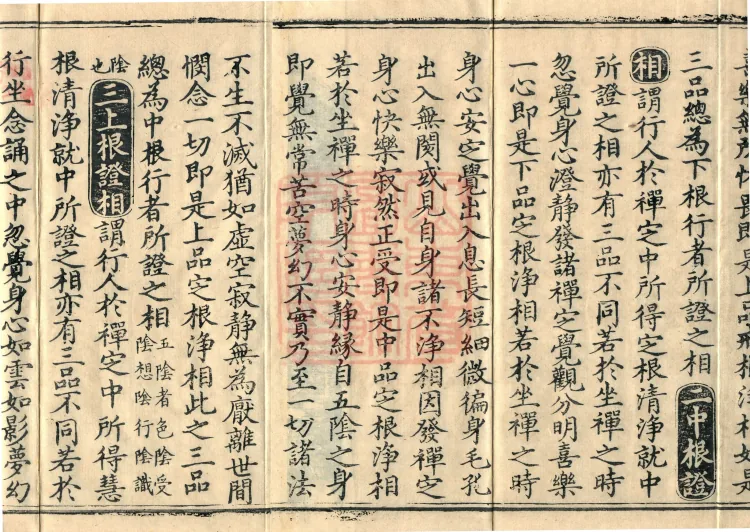 三品總為下根行者所證之相 二中根證
相 謂行人於禪定中所得定根清淨就中
所證之相亦有三品不同若於坐禪之時
忽覺身心澄靜發諸禪定覺觀分明喜樂
一心即是下品定根淨相若於坐禪之時
身心安定覺出入息長短細微徧身毛孔
出入無閡或見自身諸不淨相因發禪定
身心快樂寂然正受即是中品定根淨相
若於坐禪之時身心安靜緣自五陰之身
即覺無常苦空夢幻不實乃至一切諸法
不生不滅猶如虛空寂靜無為厭離世間
憫念一切即是上品定根淨相此之三品
總為中根行者所證之相 五陰者色陰受陰想陰行陰識
陰也 三上根證相 謂行人於禪定中所得慧
根清淨就中所證之相亦有三品不同若於
行坐念誦之中忽覺身心如雲如影夢幻